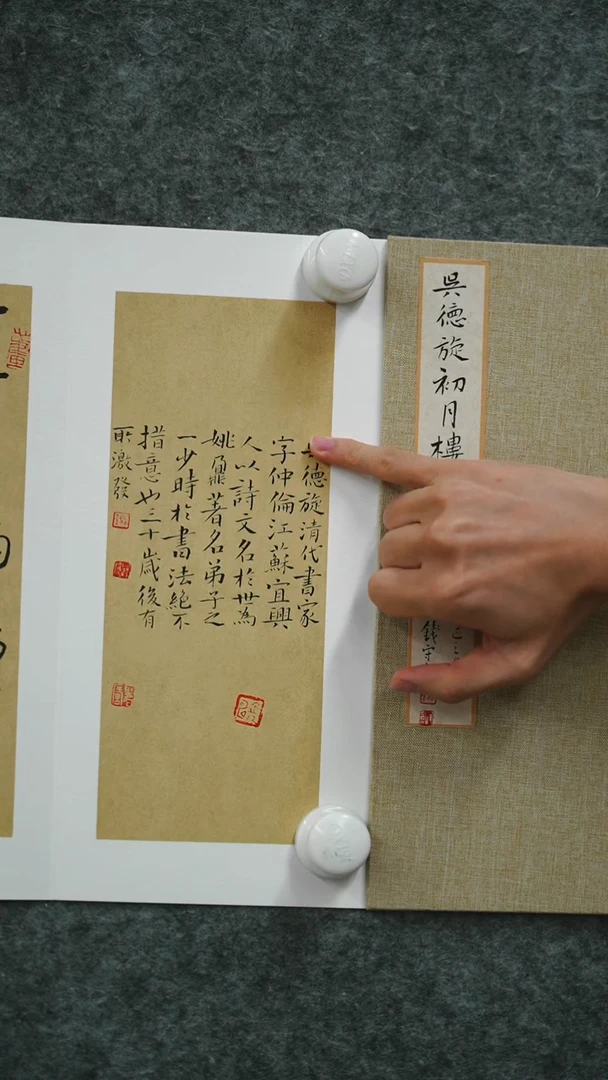 吳德旋初月樓
吳德旋清代書家
字仲倫江蘇宜興
人以詩文名於世為
姚鼐著名弟子之
一少時於書法絕不
措意也三十歲後有
所激發